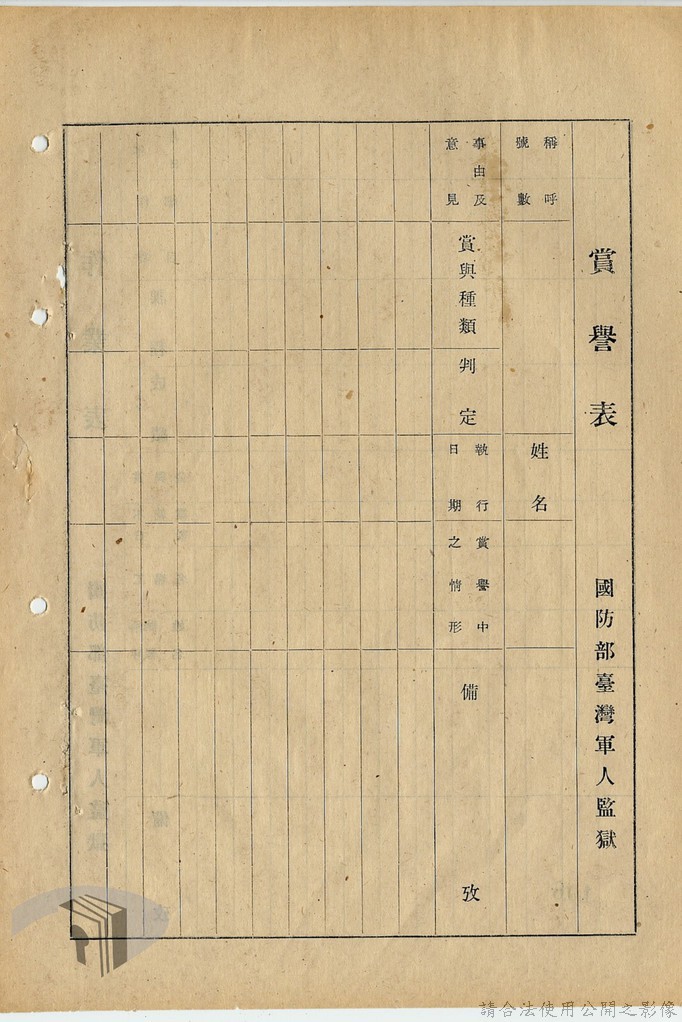 賞譽表
國防部臺灣軍人監獄
稱呼
號數
姓名
事由及
意見
賞與種類
判定
執行
日期
賞譽中
之情形
備攷
請合法使用公開之影像